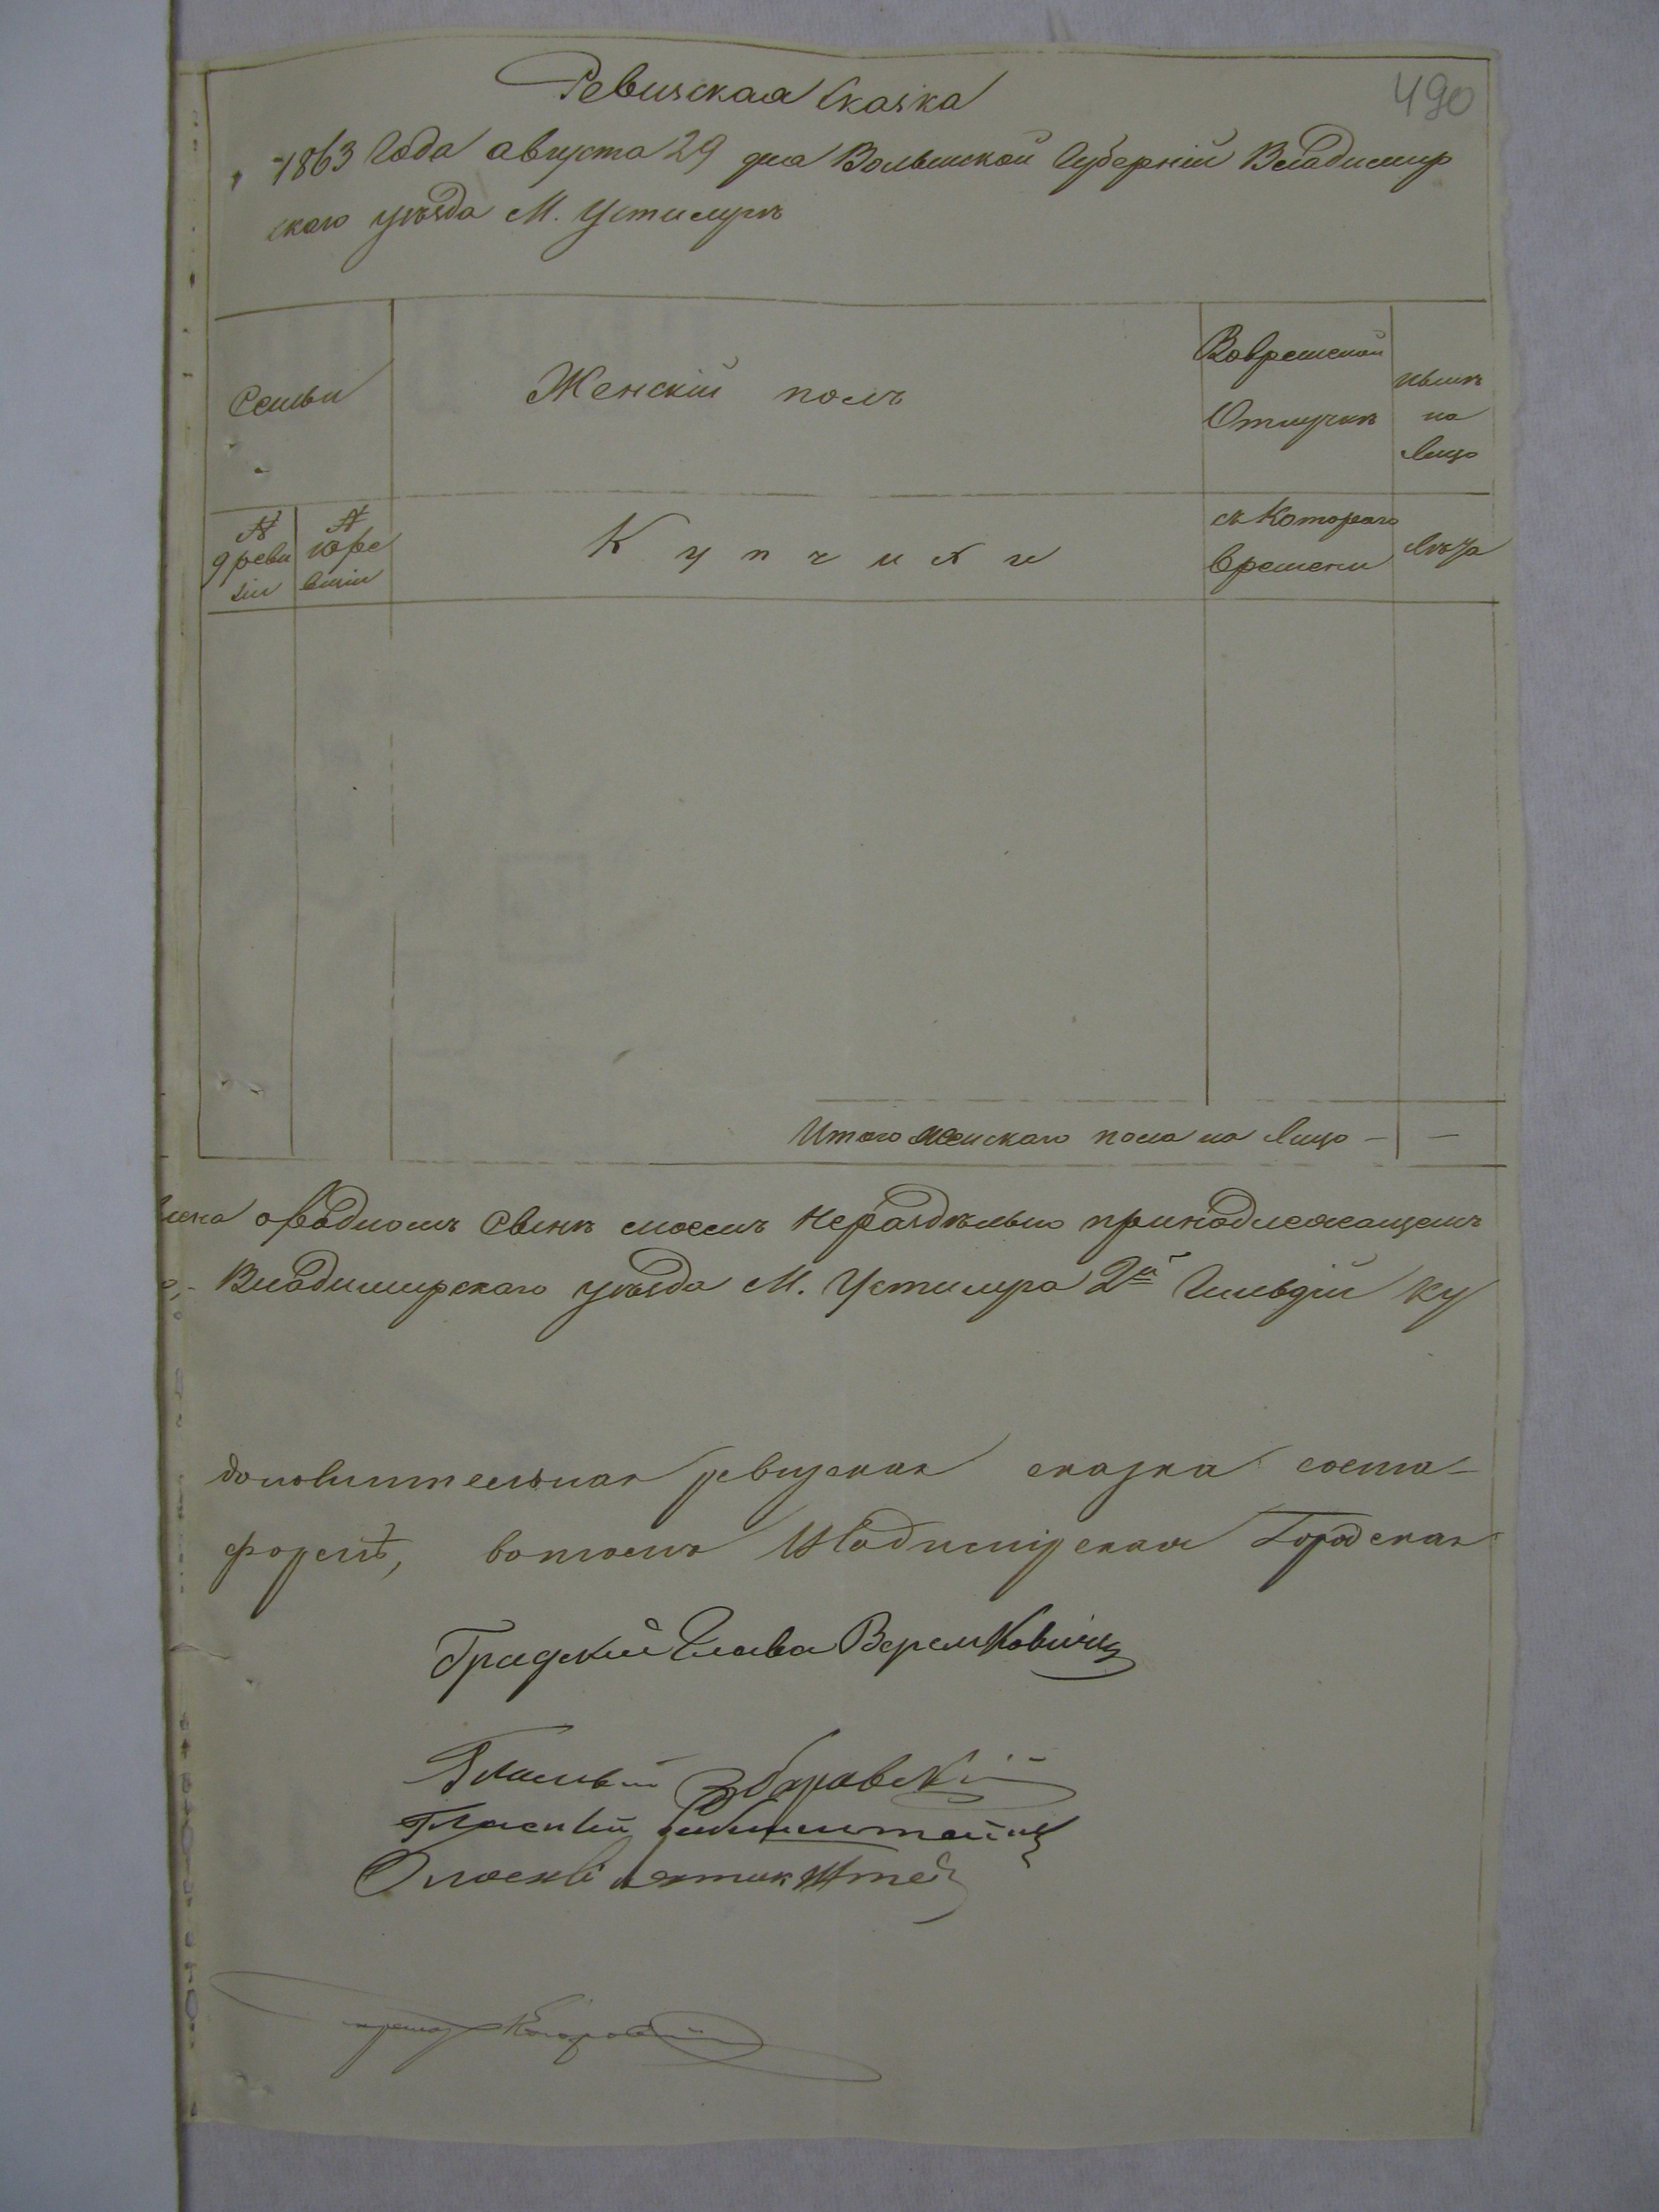 490
Ревизская Сказка
1863 Года августа 29 дня Волынской Губерніи Владимир
скаго уѣзда М. Устилугъ
Семьи
Женскій полъ
Вовременной
Отлучкѣ
нынѣ
на
Лицо
№
9 реви
зіи
№
10 ре
визіи
Купчихи
съ Котораго
Времени
Лѣта
Итого женскаго пола на Лицо — —
моемъ нераздѣльно принадлежащемъ
Владимирскаго уѣзда М. Устилуга 2й Гильдіи ку
дополнительная ревизская сказка соста-
формѣ, вотомъ Владимірская Городская
Градскій Глава
Гласный
Гласный